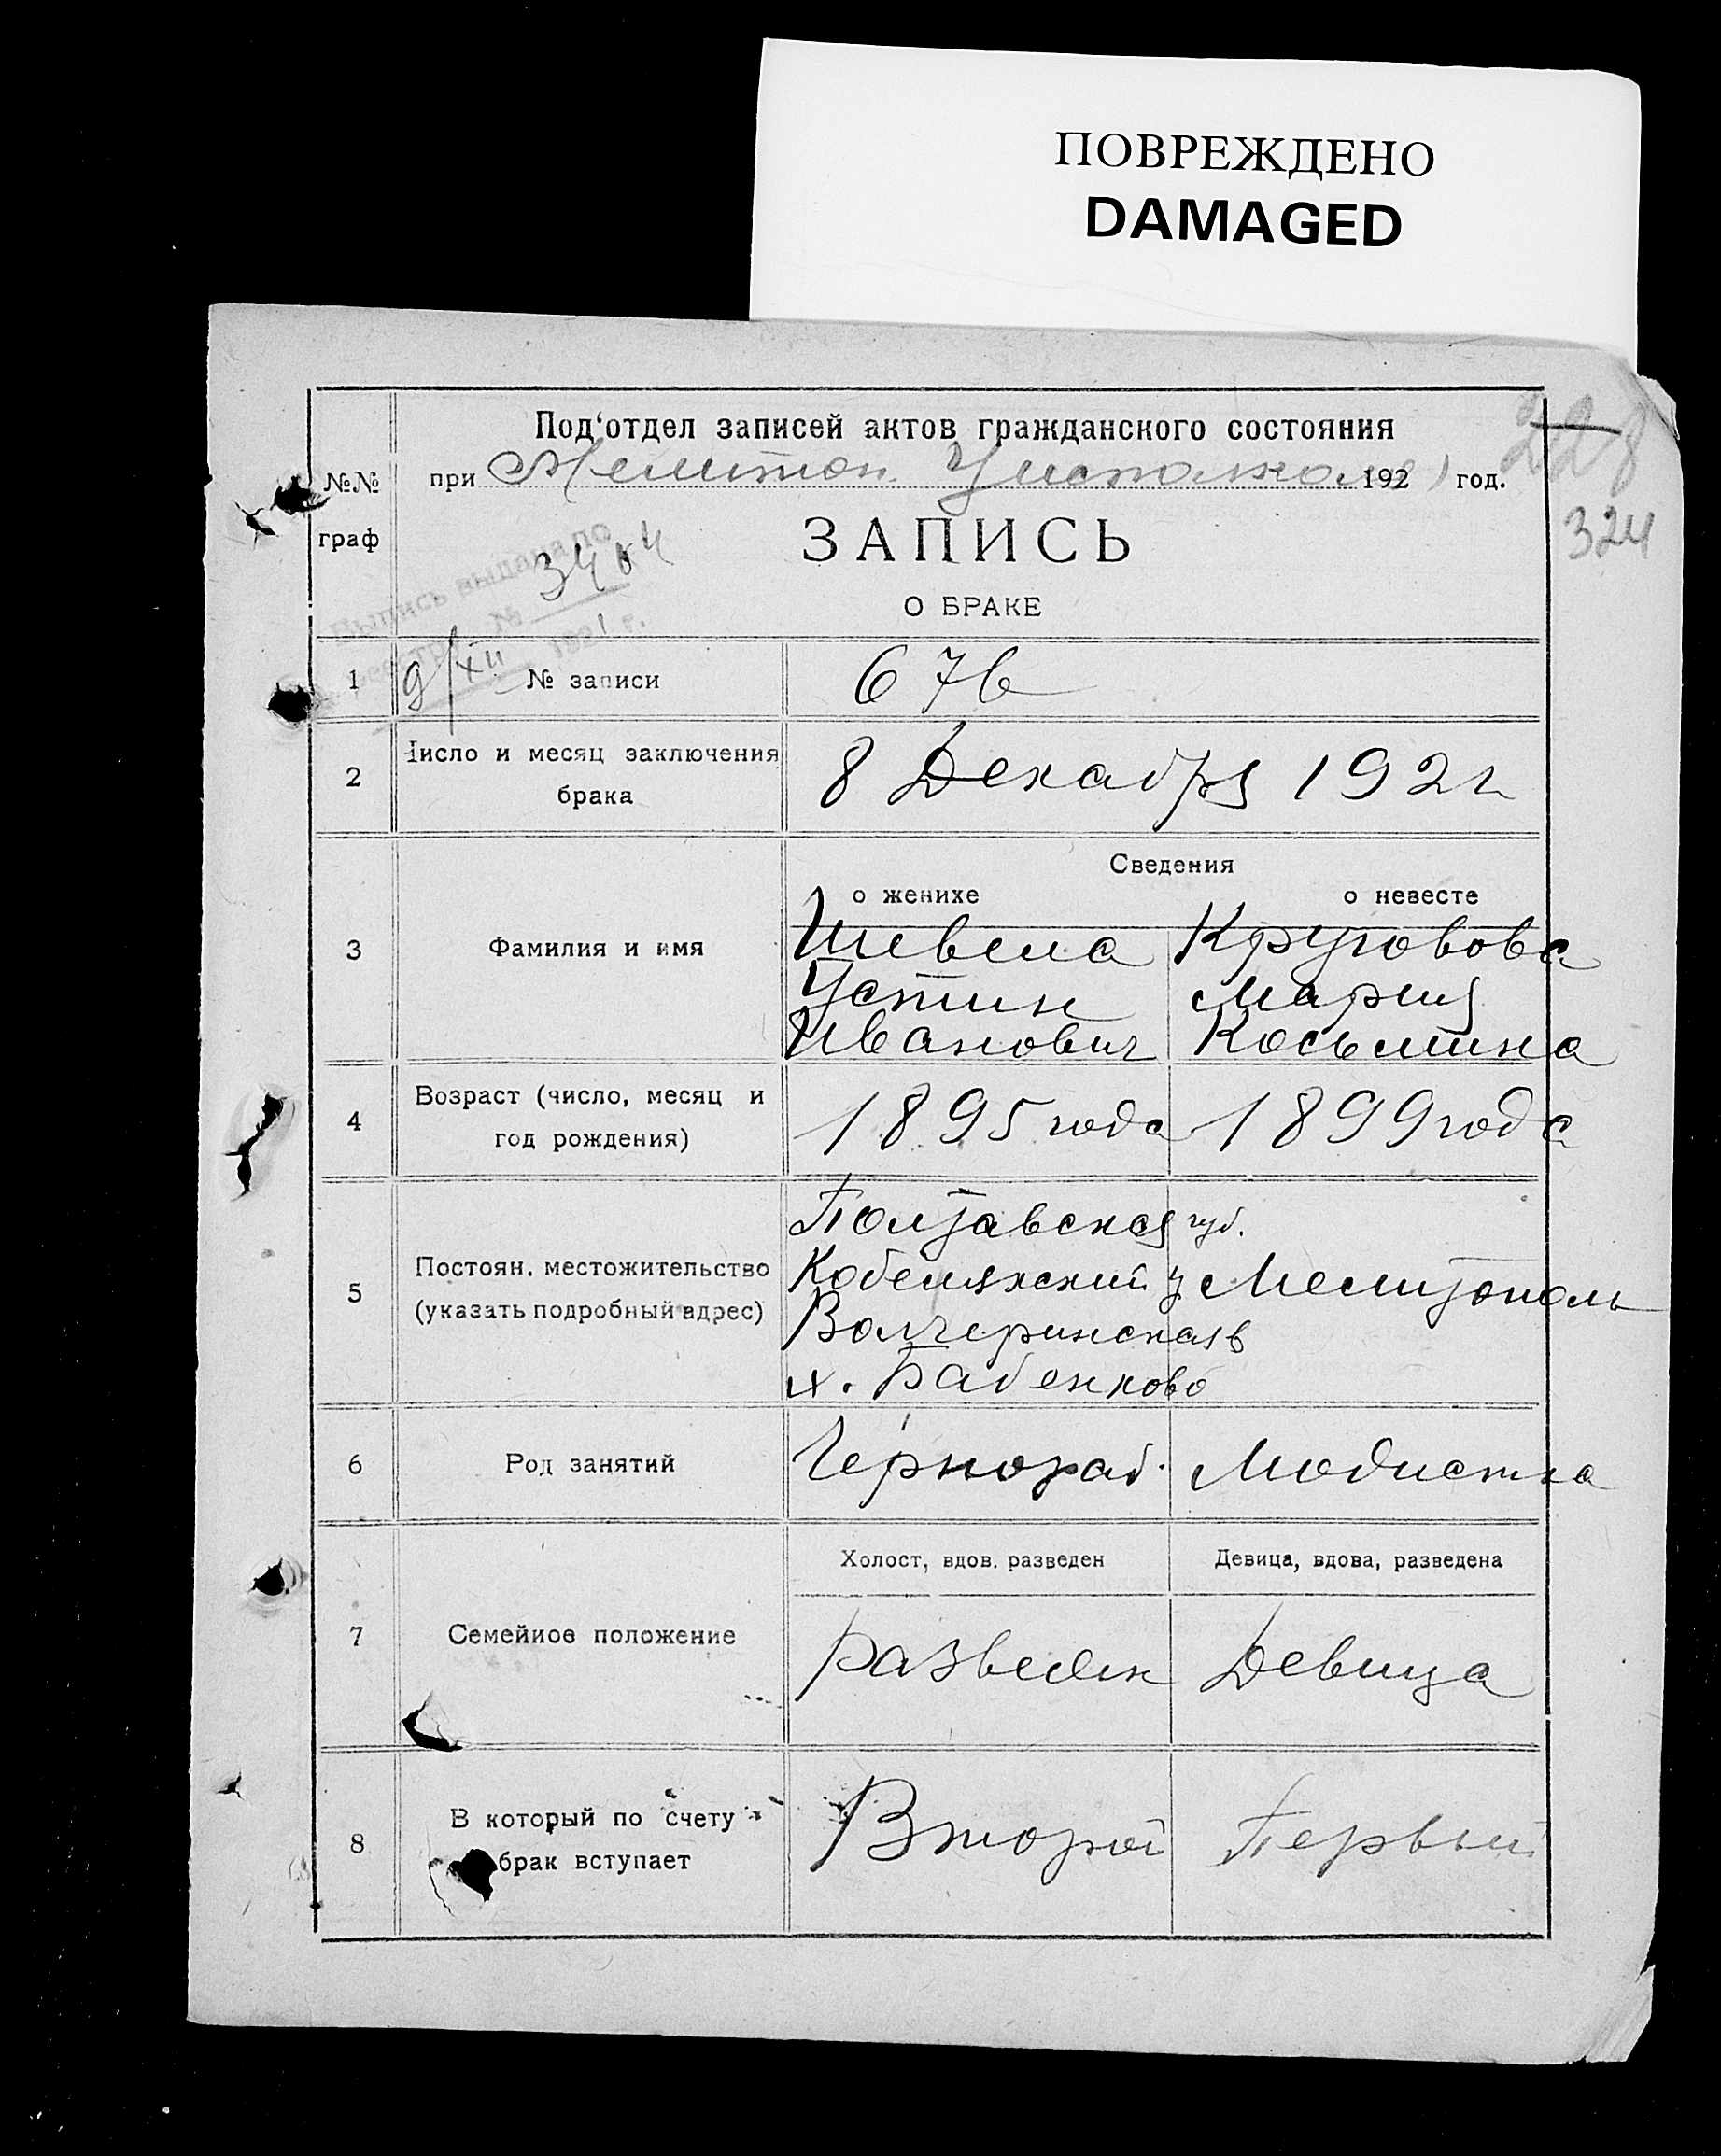 ПОВРЕЖДЕНО
DAMAGED
Под‘отдел записей актов гражданского состояния
при Мелитоп. Уисполкоме 1921 год.
228
324
№№
граф
ЗАПИСЬ
О БРАКЕ
Выпись выдана по
реестру № 3404
9/XII 1921 г.
1 № записи 676
2 Число и месяц заключения
брака
8 Декабря 1921
Сведения
о женихе о невесте
3 Фамилия и имя
Шевела Круговова
Устин Мария
Иванович Косьмина
4 Возраст (число, месяц и
год рождения)
1895 года 1899 года
5 Постоян. местожительство
(указать подробный адрес)
Полтавская губ.
Кобелякский у Мелитополь
в
х. Бабенково
6 Род занятий
Чернораб. Модистка
Холост, вдов. разведен Девица, вдова, разведена
7 Семейное положение
разведен Девица
8 В который по счету
брак вступает
Второй Первый